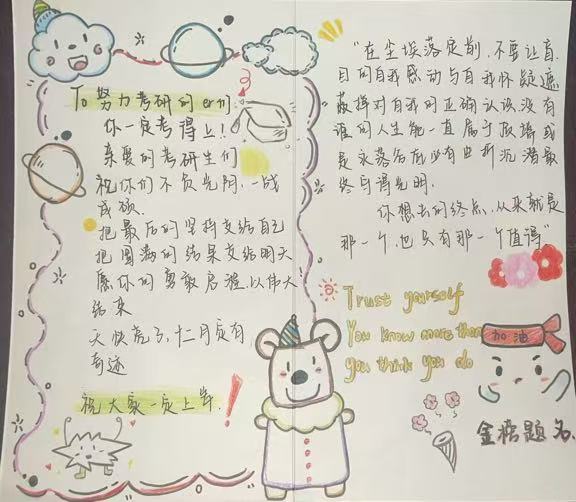 To 努力考研的er们
你一定考得上!
亲爱的考研生们
祝你们不负光阴,一战
成硕.
把最后的坚持交给自己
把圆满的结果交给明天
愿你们勇敢启程,以伟大
结束
天快亮了,十二月定有
奇迹
祝大家一定上岸.
"在尘埃落定前,不要让盲
目的自我感动与自我怀疑遮
蔽掉对自我的正确认识没有
谁的人生能一直属于顶撞或
是永落谷底必有曲折沉潜最
终易得光明.
你想去的终点,从来就是
那一个,也只有那一个值得"
Trust yourself
You know more than
you think you do
加油
金榜题名.